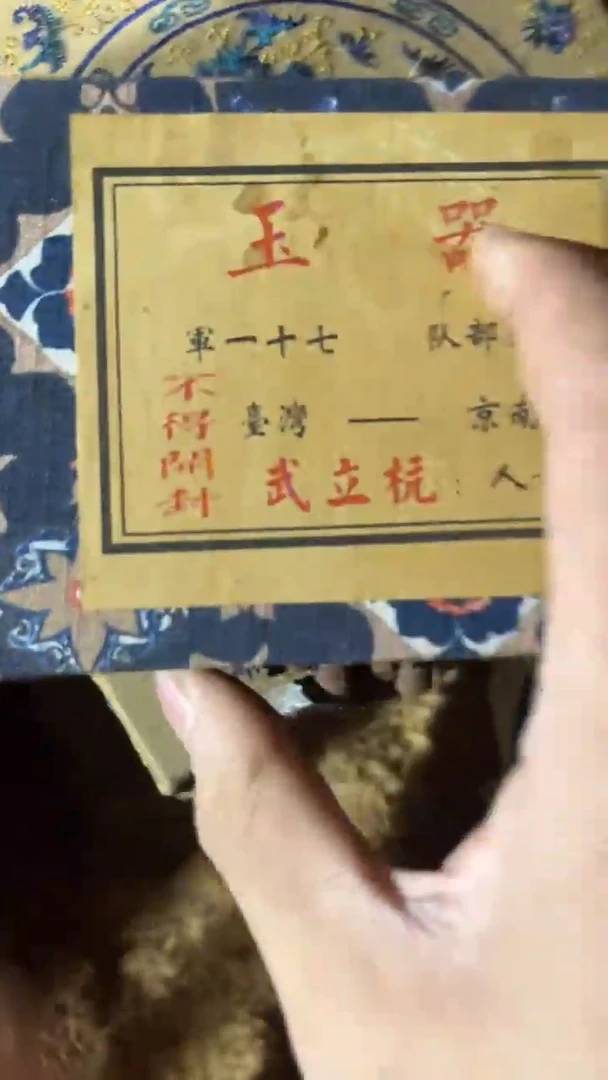 玉器
部队 七十一軍
南京 —— 臺灣
人：杭立武
不得開封